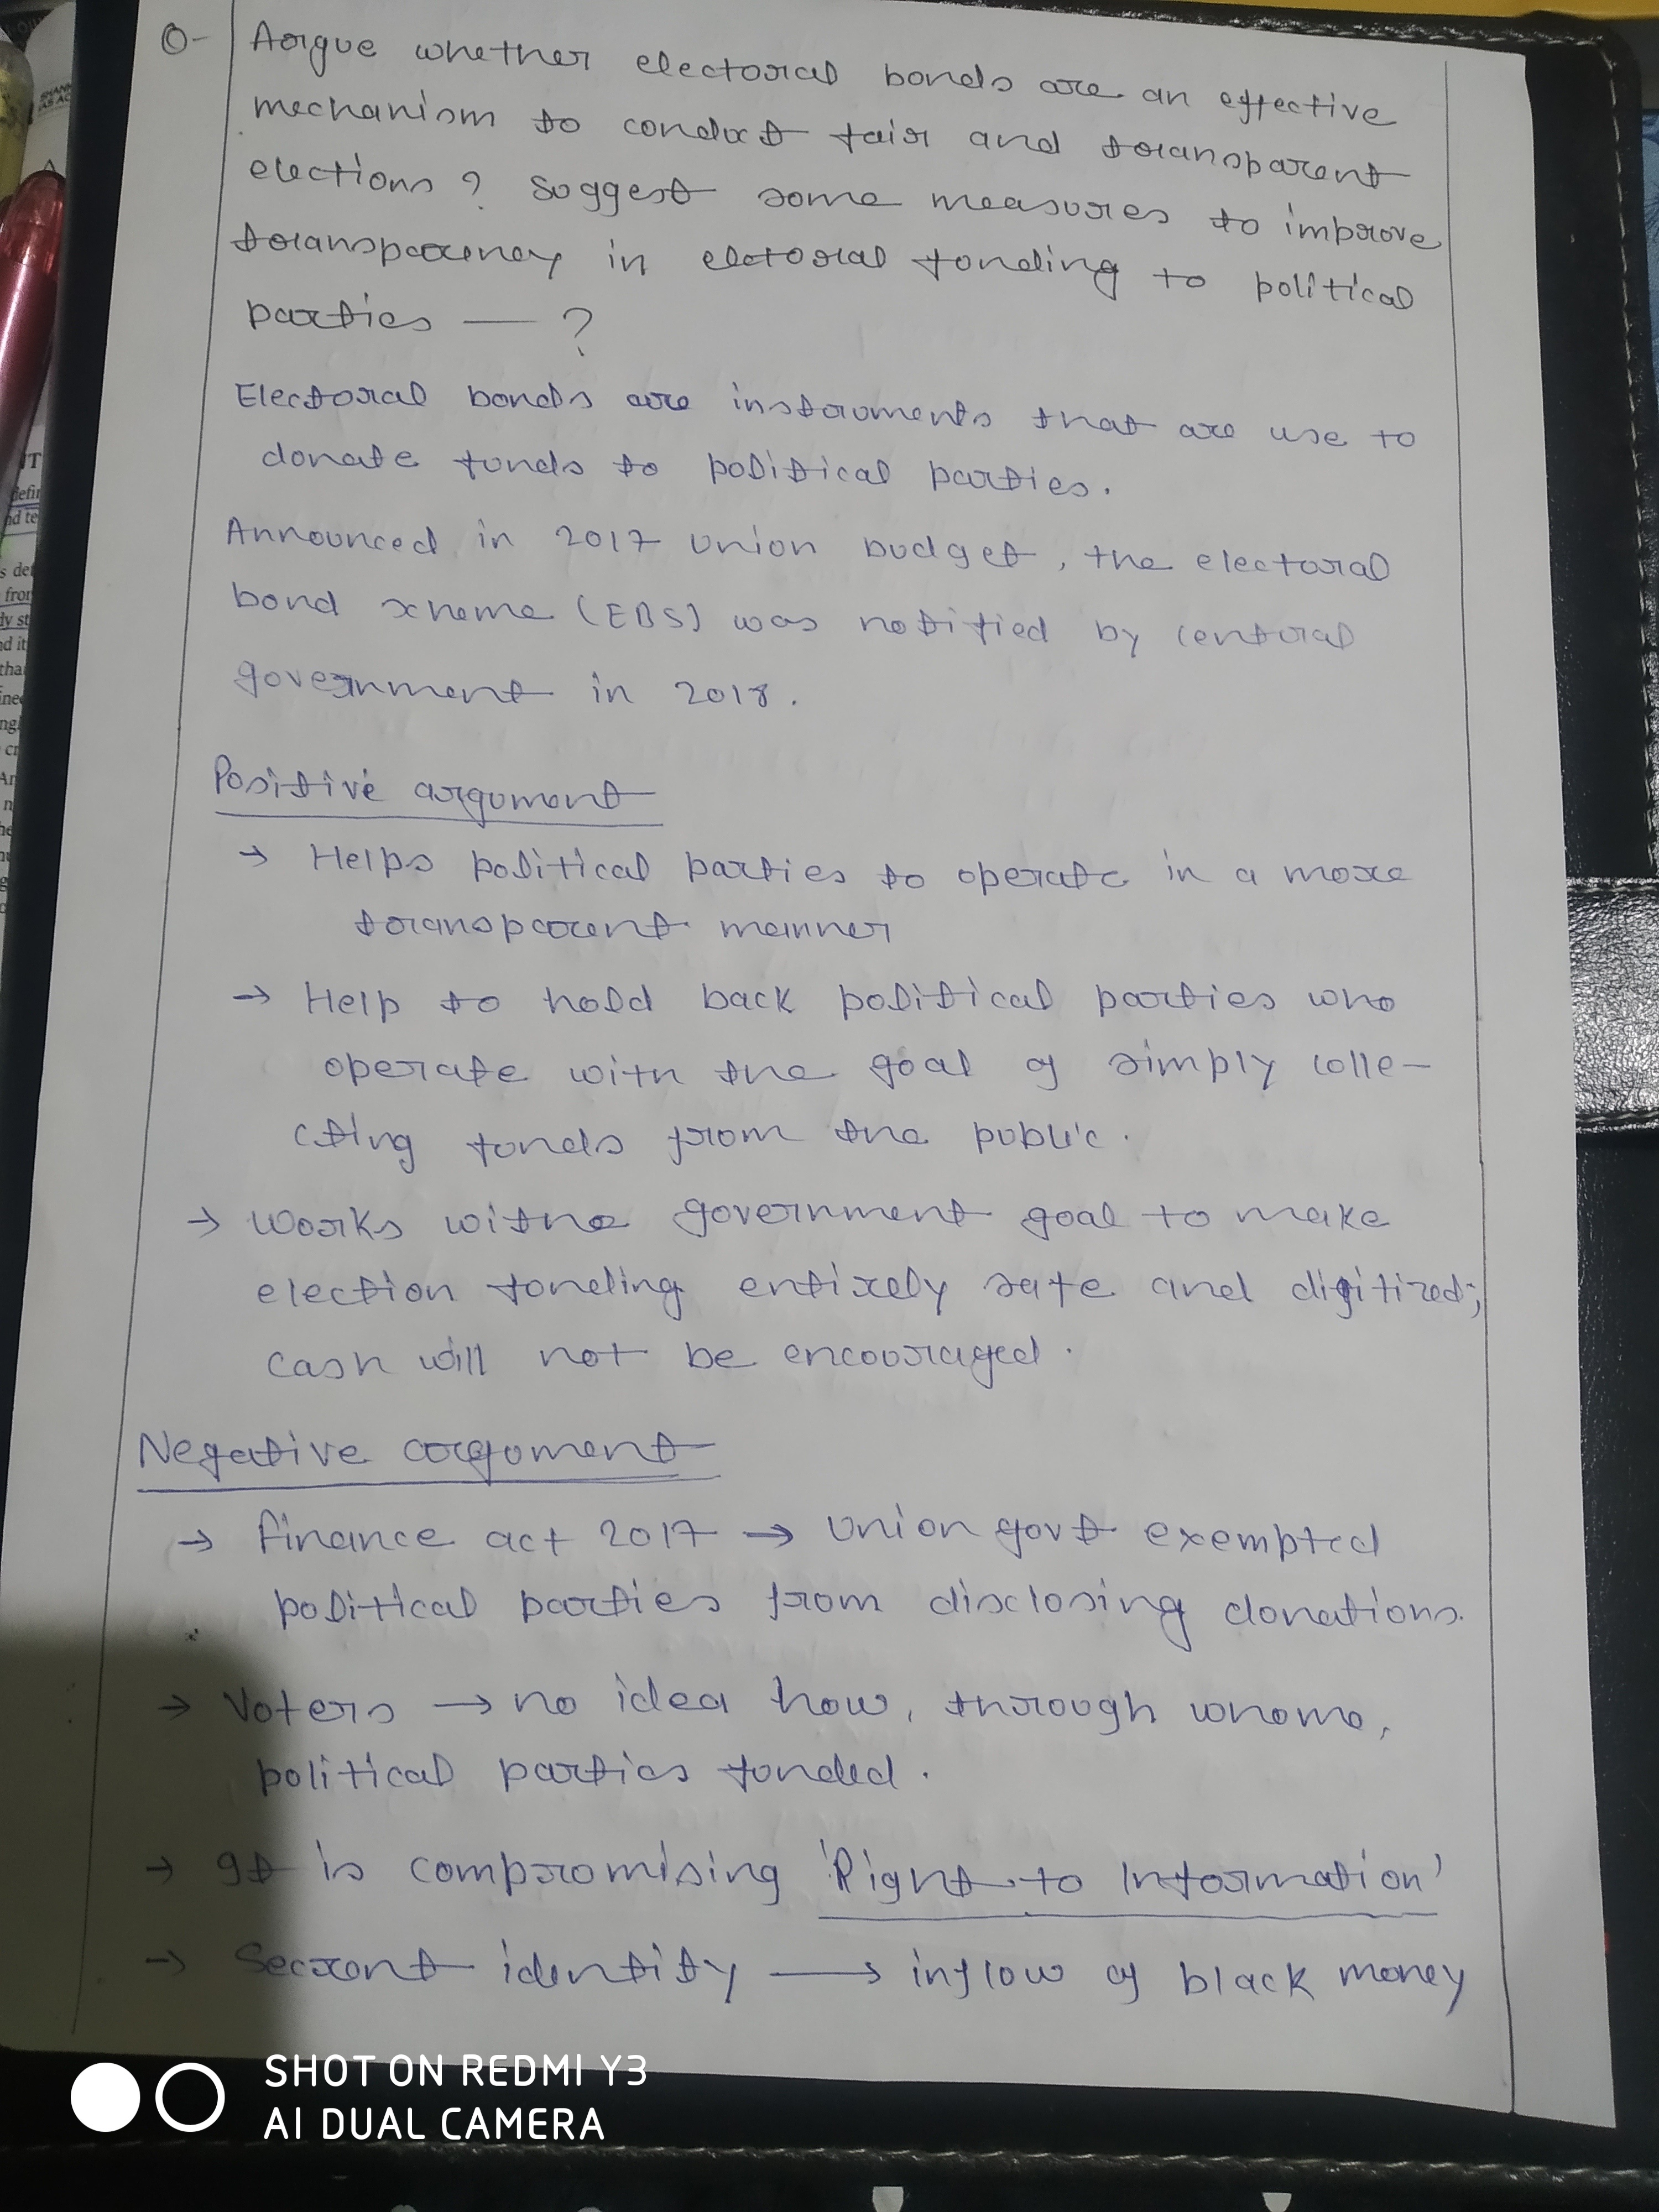 Q- Argue whether electoral bonds are an effective
mechanism to conduct fair and transparent
elections ? Suggest some measures to improve
transparency in elctoral funding to political
parties — ?
Electoral bonds are instruments that are use to
donate funds to political parties.
Announced in 2017 union budget, the electoral
bond scheme (EBS) was notified by central
government in 2018.
Positive argument
→ Helps political parties to operate in a more
transparent manner
→ Help to hold back political parties who
operate with the goal of simply colle-
cting funds from the public.
→ Works withe government goal to make
election funding entirely safe and digitized;
cash will not be encouraged.
Negative argument
→ Finance act 2017 → Union govt exempted
political parties from disclosing donations.
→ Voters → no idea how, through whome,
political parties funded.
→ It is compromising 'Right to Information'
→ Secreat identity → inflow of black money
SHOT ON REDMI Y3
AI DUAL CAMERA